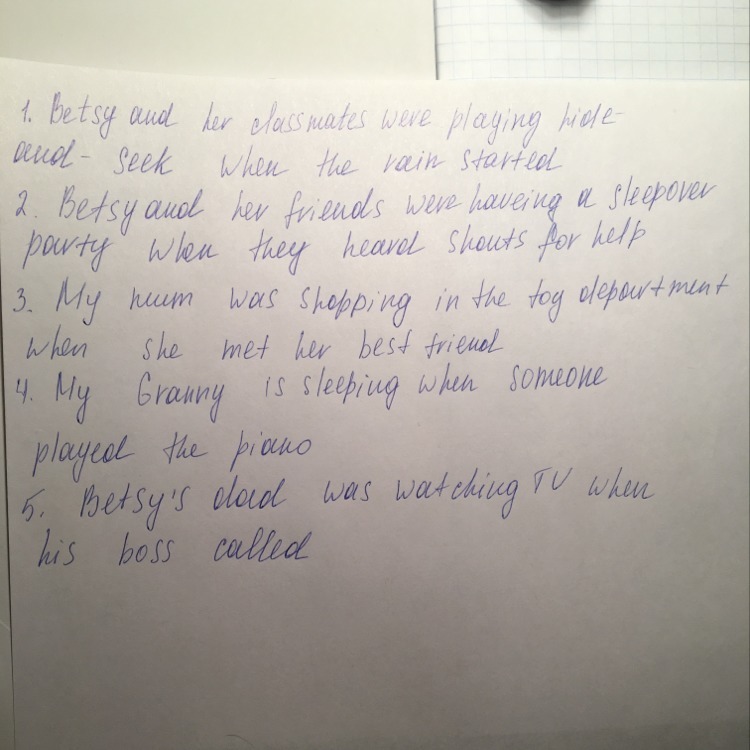 1. Betsy and her classmates were playing hide-
and- seek when the rain started
2. Betsy and her friends were haveing a sleepover
party when they heard shouts for help
3. My mum was shopping in the toy department
when she met her best friend
4. My Granny is sleeping when someone
played the piano
5. Betsy's dad was watching TV when
his boss called